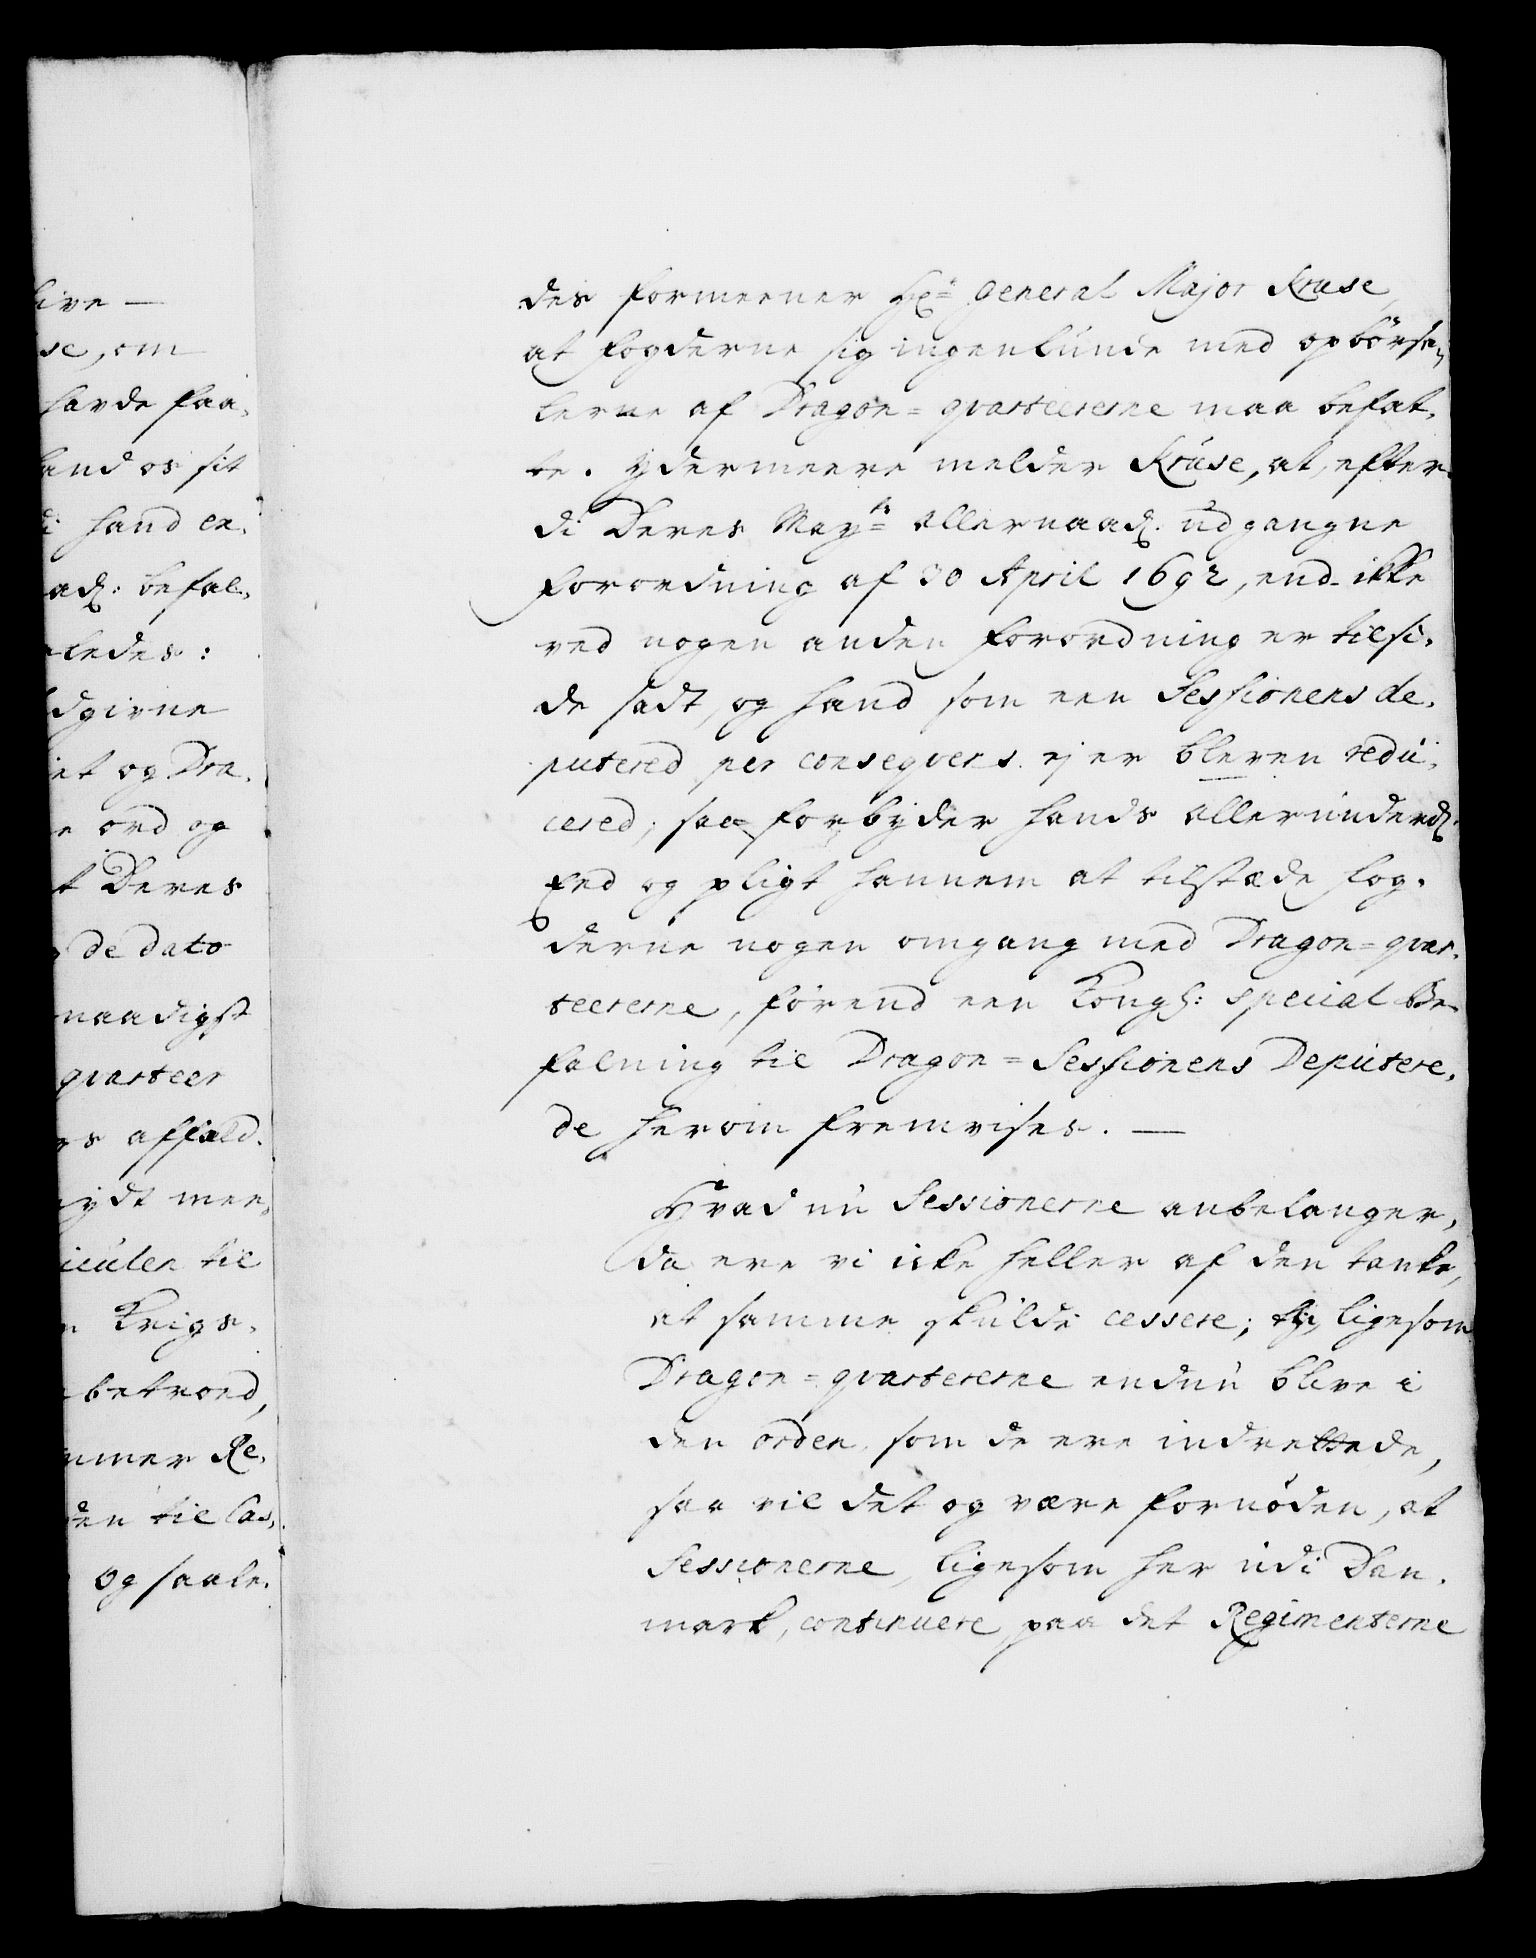 live —
se, om
havde faa,
land os sit
di hand er,
ad: befal,
ledes:
dgivne
et og Dra,
e ord og
t Deres
de dato
naadigst
quarteer
rs affald.
ydt mee,
iculen til
n Krigs,
betroed,
mmer Re,
den til Cas,
og saale,
des formeener Hr: General Major Kruse,
at fogderne sig ingenlunde med opbørse,
lerne af Dragon=qvarteererne maa befat,
te. Ydermeere melder Kruse, at, efter,
di Deres Mayts allernaad. udgangne
forordning af 30 April 1692, end ikke
ved nogen anden forordning er tilsi,
de sadt, og hand som een Sessionens de,
putered per conseqvens ej er bleven redu,
cered; saa forbyder hands allerunderd.
Eed og pligt hannem at tilstæde fog,
derne nogen omgang med Dragon=qvar,
teererne, førend een Kongl: special Be,
falning til Dragon=Sessionens Deputere,
de herom fremvises. —
Hvad nu Sessionerne anbelanger,
da ere vi icke heller af den tanke,
at samme skulde cessere; thi, ligesom
Dragon=qvartererne endnu blive i
den orden, som de ere indrettede,
saa vil det og være fornøden, at
Sessionerne, ligesom her udi Dan,
mark, continuere, paa det Regimenterne